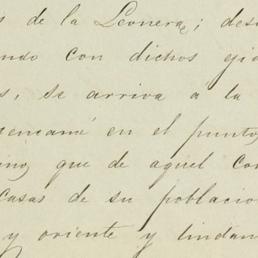 s de la Leonera; desd
ndo con dichos ejid
s, se arriva a la
en el punto
que de aquel con
casas de su poblacion
y oriente y lindan